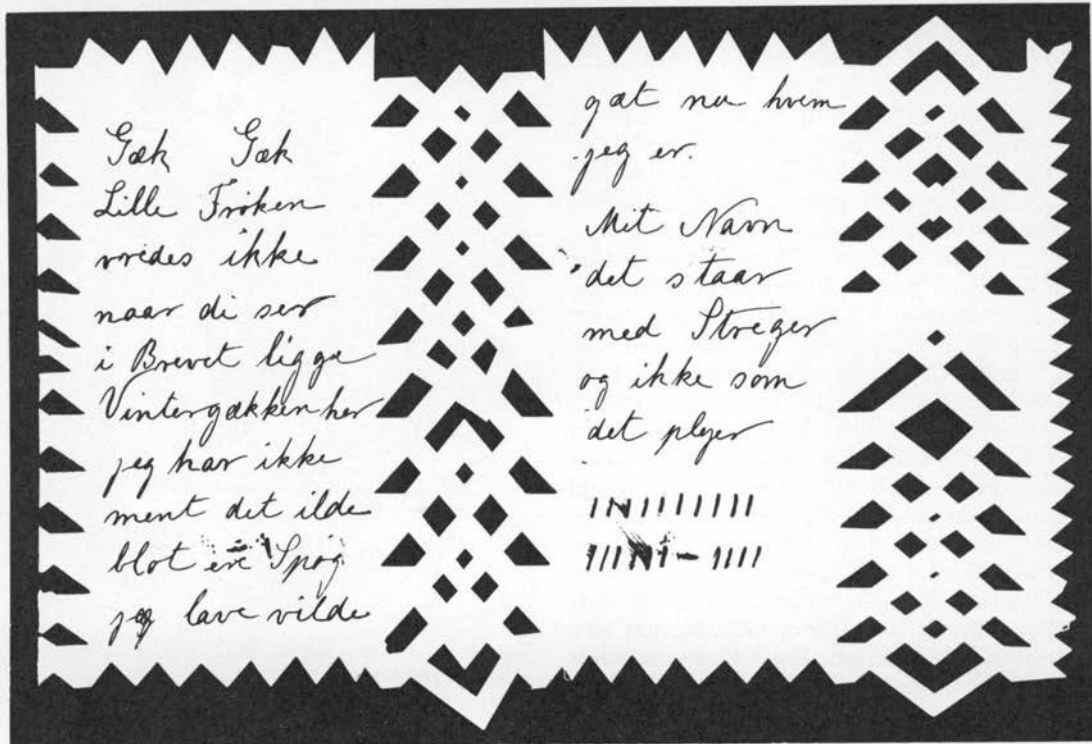 Gæk Gæk
Lille Frøken
vredes ikke
naar di ser
i Brevet ligge
Vintergækken her
jeg har ikke
ment det ilde
blot en Spøg
jeg lave vilde
gæt nu hvem
jeg er.
Mit Navn
det staar
med Streger
og ikke som
det plejer